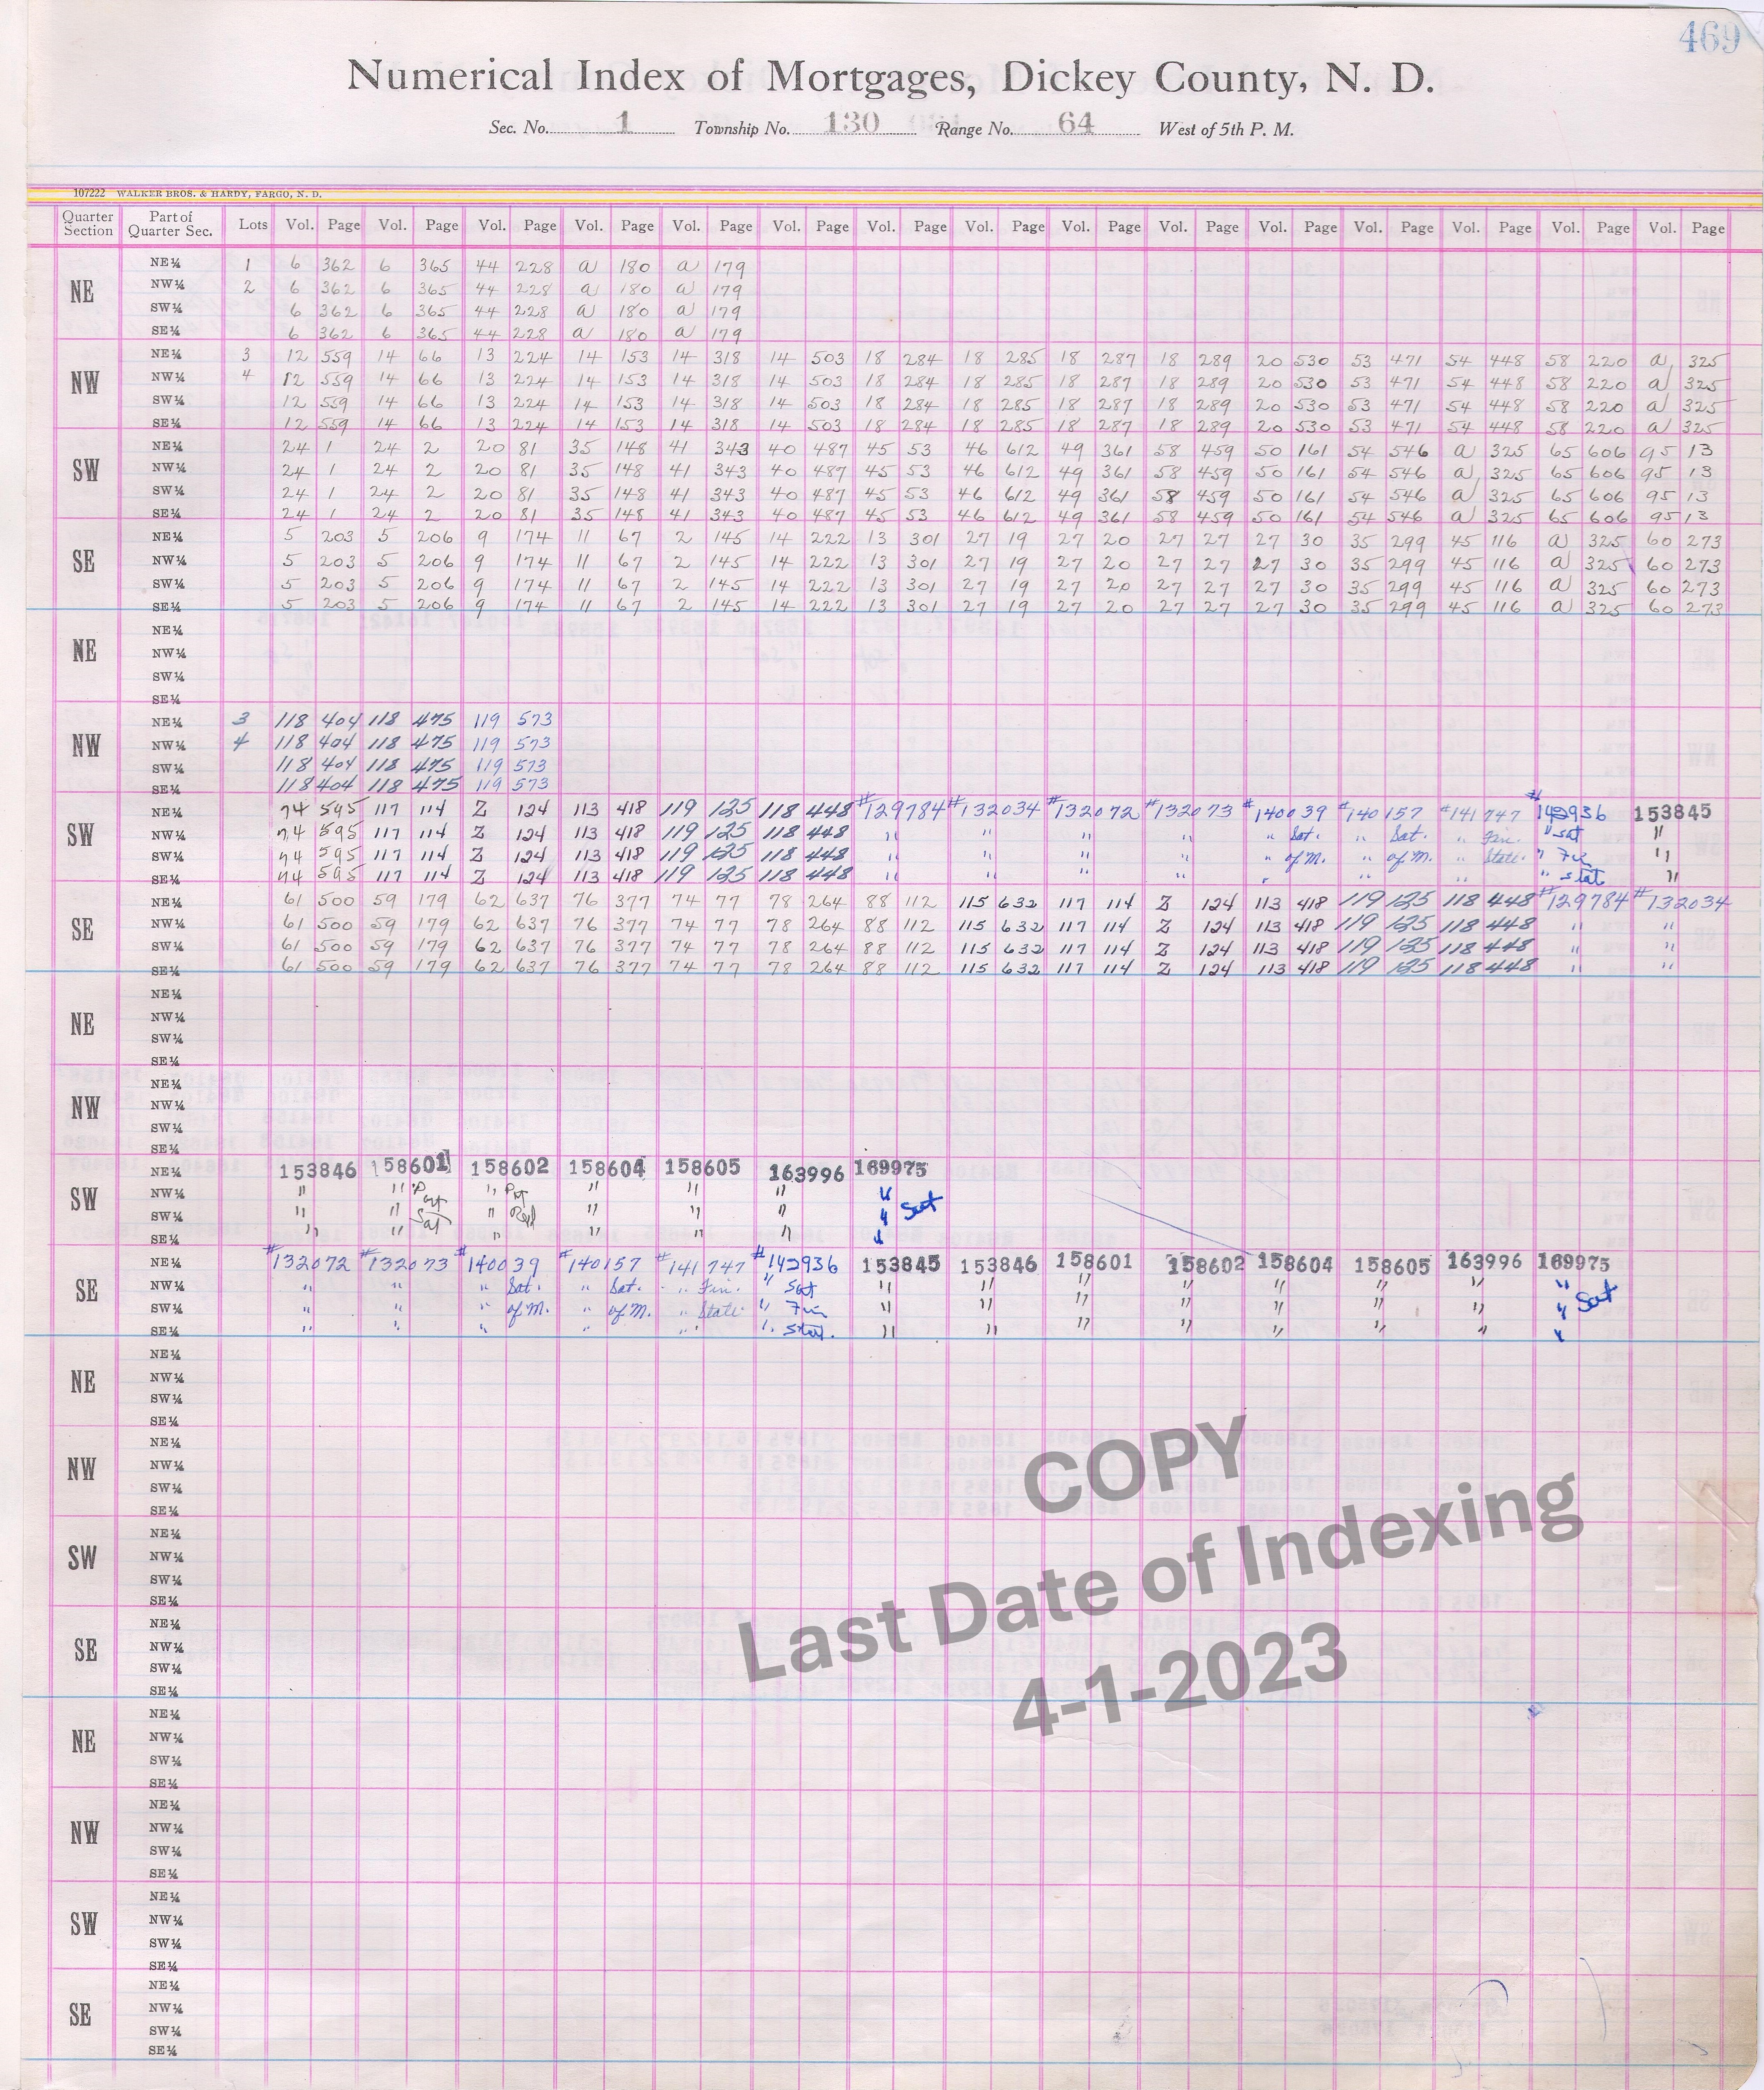 469
Numerical Index of Mortgages, Dickey County, N. D.
Sec. No. 1 Township No. 130 Range No. 64 West of 5th P. M.
107222 WALKER BROS. & HARDY, FARGO, N. D.
Quarter Section Part of Quarter Sec. Lots Vol. Page Vol. Page Vol. Page Vol. Page Vol. Page Vol. Page Vol. Page Vol. Page Vol. Page Vol. Page Vol. Page Vol. Page Vol. Page Vol. Page Vol. Page
NE
NE¼ 1 6 362 6 365 44 228 a 180 a 179
NW¼ 2 6 362 6 365 44 228 a 180 a 179
SW¼ 6 362 6 365 44 228 a 180 a 179
SE¼ 6 362 6 365 44 228 a 180 a 179
NW
NE¼ 3 12 559 14 66 13 224 14 153 14 318 14 503 18 284 18 285 18 287 18 289 20 530 53 471 54 448 58 220 a 325
NW¼ 4 12 559 14 66 13 224 14 153 14 318 14 503 18 284 18 285 18 287 18 289 20 530 53 471 54 448 58 220 a 325
SW¼ 12 559 14 66 13 224 14 153 14 318 14 503 18 284 18 285 18 287 18 289 20 530 53 471 54 448 58 220 a 325
SE¼ 12 559 14 66 13 224 14 153 14 318 14 503 18 284 18 285 18 287 18 289 20 530 53 471 54 448 58 220 a 325
SW
NE¼ 24 1 24 2 20 81 35 148 41 343 40 487 45 53 46 612 49 361 58 459 50 161 54 546 a 325 65 606 95 13
NW¼ 24 1 24 2 20 81 35 148 41 343 40 487 45 53 46 612 49 361 58 459 50 161 54 546 a 325 65 606 95 13
SW¼ 24 1 24 2 20 81 35 148 41 343 40 487 45 53 46 612 49 361 58 459 50 161 54 546 a 325 65 606 95 13
SE¼ 24 1 24 2 20 81 35 148 41 343 40 487 45 53 46 612 49 361 58 459 50 161 54 546 a 325 65 606 95 13
SE
NE¼ 5 203 5 206 9 174 11 67 2 145 14 222 13 301 27 19 27 20 27 27 27 30 35 299 45 116 a 325 60 273
NW¼ 5 203 5 206 9 174 11 67 2 145 14 222 13 301 27 19 27 20 27 27 27 30 35 299 45 116 a 325 60 273
SW¼ 5 203 5 206 9 174 11 67 2 145 14 222 13 301 27 19 27 20 27 27 27 30 35 299 45 116 a 325 60 273
SE¼ 5 203 5 206 9 174 11 67 2 145 14 222 13 301 27 19 27 20 27 27 27 30 35 299 45 116 a 325 60 273
NE
NE¼
NW¼
SW¼
SE¼
NW
NE¼ 3 118 404 118 475 119 573
NW¼ 4 118 404 118 475 119 573
SW¼ 118 404 118 475 119 573
SE¼ 118 404 118 475 119 573
SW
NE¼ 74 595 117 114 Z 124 113 418 119 125 118 448 #129784 #132034 #132072 #132073 #140039 #140157 #141747 #142936 153845
NW¼ 74 595 117 114 Z 124 113 418 119 125 118 448 " " " " " Sat. " Sat. " Fin. " Sat "
SW¼ 74 595 117 114 Z 124 113 418 119 125 118 448 " " " " " of M. " of M. " State. " Fin "
SE¼ 74 595 117 114 Z 124 113 418 119 125 118 448 " " " " " " " " stat "
SE
NE¼ 61 500 59 179 62 637 76 377 74 77 78 264 88 112 115 632 117 114 Z 124 113 418 119 125 118 448 #129784 #132034
NW¼ 61 500 59 179 62 637 76 377 74 77 78 264 88 112 115 632 117 114 Z 124 113 418 119 125 118 448 " "
SW¼ 61 500 59 179 62 637 76 377 74 77 78 264 88 112 115 632 117 114 Z 124 113 418 119 125 118 448 " "
SE¼ 61 500 59 179 62 637 76 377 74 77 78 264 88 112 115 632 117 114 Z 124 113 418 119 125 118 448 " "
NE
NE¼
NW¼
SW¼
SE¼
NW
NE¼
NW¼
SW¼
SE¼
SW
NE¼ 153846 158601 158602 158604 158605 163996 169975
NW¼ " " Prt " Prt " " " "
SW¼ " " Sat " Rel " " " " Sat
SE¼ " " " " " " "
SE
NE¼ #132072 #132073 #140039 #140157 #141747 #142936 153845 153846 158601 158602 158604 158605 163996 169975
NW¼ " " " Sat. " Sat. " Fin. " Sat " " " " " " " "
SW¼ " " " of M. " of M. " State. " Fin " " " " " " " " Sat
SE¼ " " " " " " Stat. " " " " " " " "
NE
NE¼
NW¼
SW¼
SE¼
NW
NE¼
NW¼
SW¼
SE¼
SW
NE¼
NW¼
SW¼
SE¼
SE
NE¼
NW¼
SW¼
SE¼
NE
NE¼
NW¼
SW¼
SE¼
NW
NE¼
NW¼
SW¼
SE¼
SW
NE¼
NW¼
SW¼
SE¼
SE
NE¼
NW¼
SW¼
SE¼
COPY
Last Date of Indexing
4-1-2023